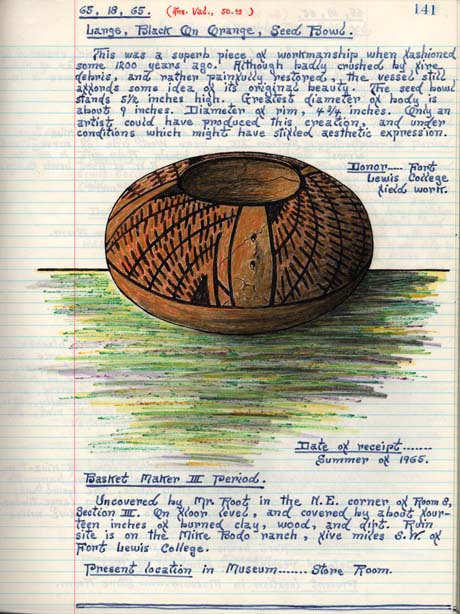 65. 18. 65. (Ins. Val., 50.00) 141
Large, Black On Orange, Seed Bowl.
This was a superb piece of workmanship when fashioned
some 1200 years ago. Although badly crushed by fire
debris, and rather painfully restored, the vessel still
affords some idea of its original beauty. The seed bowl
stands 5½ inches high. Greatest diameter of body is
about 9 inches. Diameter of rim, 4¾ inches. Only an
artist could have produced this creation, and under
conditions which might have stifled aesthetic expression.
Donor..... Fort
Lewis College
field work.
Date of receipt.......
Summer of 1965.
Basket Maker III Period.
Uncovered by Mr. Root in the N.E. corner of Room 8,
Section III. On floor level, and covered by about four-
teen inches of burned clay, wood, and dirt. Ruin
site is on the Mike Bodo ranch, five miles S.W. of
Fort Lewis College.
Present location in Museum....... Store Room.